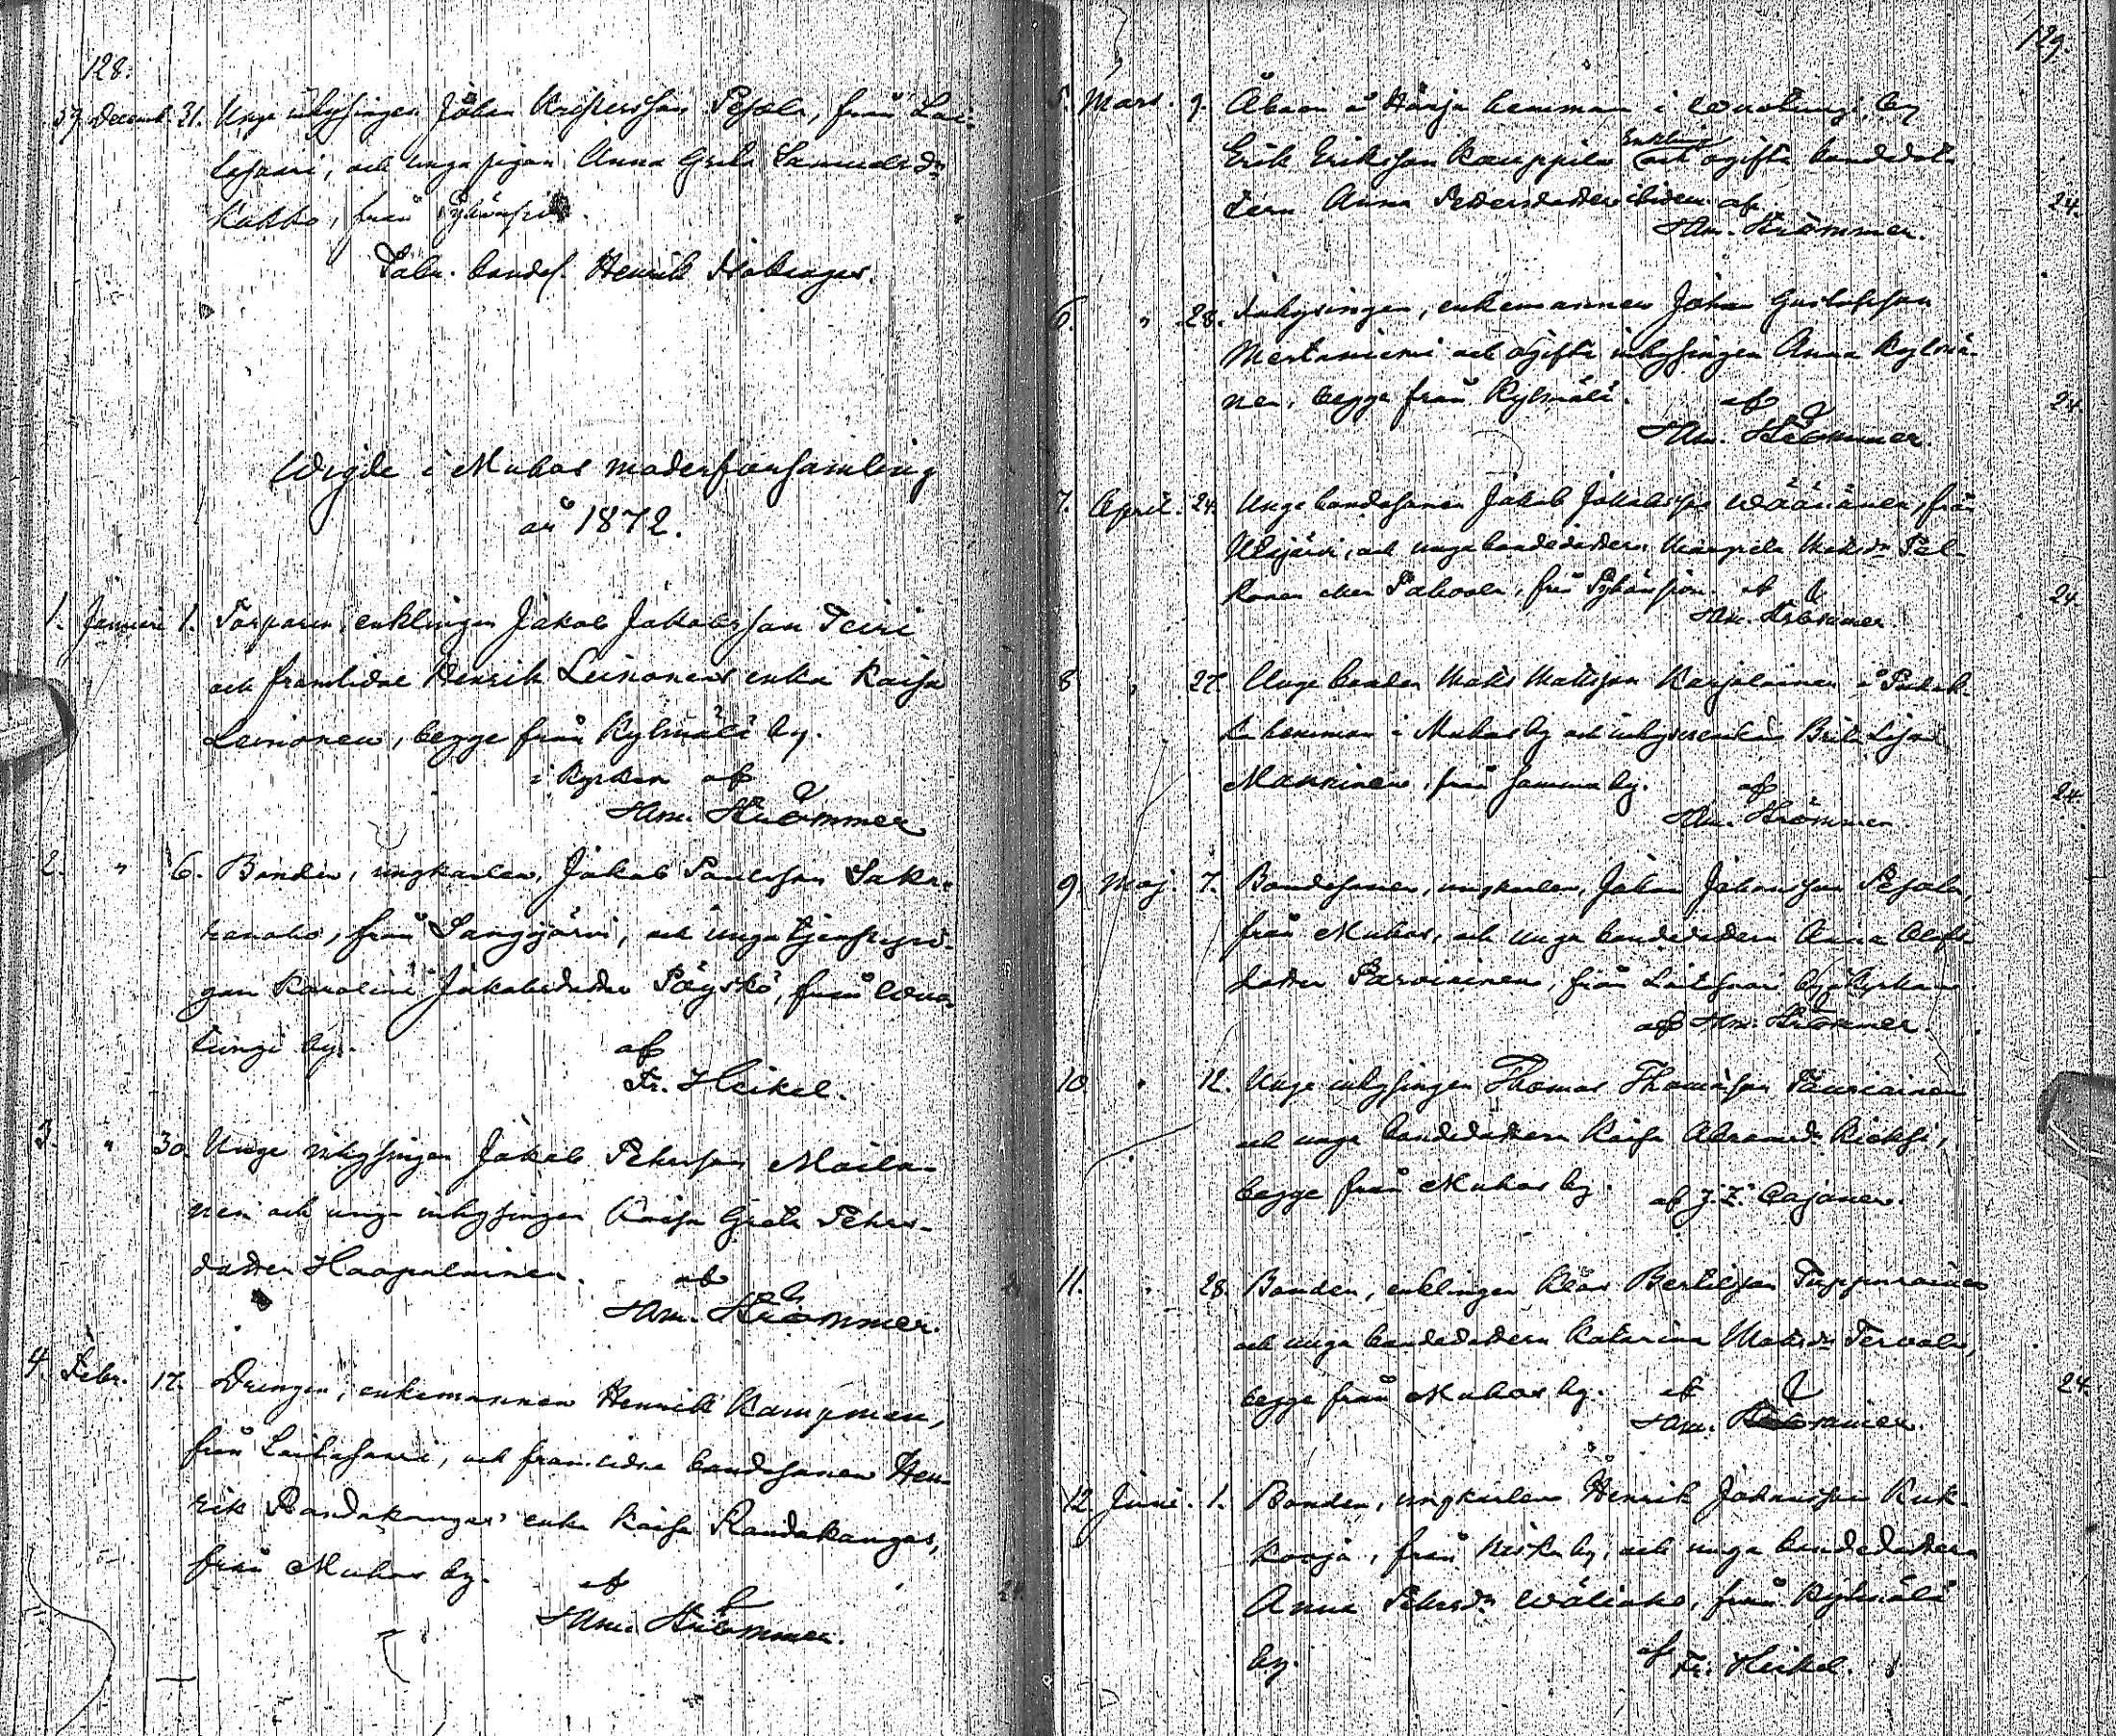 128.
37. Decemb. 31. Unge inhysingen Johan Kristersson Pesola, från Lai-
tasaari, och unga pigan Anna Greta Samuelsdr
Kukko, från Pyhänsivu.
Sabr. bondes. Henrik
Wigde i Muhos moderforsamling
år 1872.
1. Januari 1. Torparen, enklingen Jakob Jakobsson Teiri
och framlidne Henrik Leinonens enka Kaisa
Leinonen, begge från Kylmälä by.
i kyrkan af
Hm. Strömmer
2. " 6. Bonden, ungkarlen, Jakob Paulsson Saka-
ranaho, från Sangijärvi, och unga tjenstepi-
gan Karolina Jakobsdotter Päyskö, från Wuo-
tungi by.
af
Fr. Heikel.
3. " 30. Unge inhysingen Jakob Pehrsson Moila-
nen och unga inhysingen Kaisa Greta Pehrs-
dotter Haapalainen.
af
Hm. Strömmer.
4. Febr. 17. Drengen, enkemannen Henrik Kampman,
från Laitasaari, och framlidne bondesonen Hen-
rik Randakangas' enka Kaisa Randakangas,
från Muhos by.
af
Hm. Strömmer.
129.
5. Mars. 9. Åboen å Härjä hemman i Wuotungi by
Enkling
Erik Eriksson Kauppila och ogifta bondedot-
tern Anna Pettersdotter ibidem af 24.
Hm. Strömmer.
6. " 28. Inhysingen, enkemannen Johan Gustafsson
Mertaniemi och ogifta inhysingen Anna Kylmä-
nen, begge från Kylmälä. af 24
Hm. Strömmer.
7. April. 24. Unge bondesonen Jakob Jakobsson Wäänänen, från
Utajärvi, och unga bondedottern Margreta Matsdr Pel-
konen eller Pahoola, från Pyhänsivu. af 24
Hm. Strömmer.
8 " 27. Unge bonden Mats Mattsson Karjalainen å
hemman i Muhos by och inhysesenkan Brita Lisa
Manninen, från samma by. af 24
Hm. Strömmer.
9. Maj. 7. Bondesonen, ungkarlen, Johan Johansson Pesola,
från Muhos, och unga bondedottern Anna Olofs-
dotter Parviainen, från Laitasaari by i kyrkan
af Hm. Strömmer.
10. " 12. Unge inhysingen Thomas Thomasson Tauriainen
och unga bondedottern Kaisa Abramsdr Kieksi,
begge från Muhos by. af J. Z. Cajaner.
11. " 28. Bonden, enklingen Klas Bertilsson Tuppurainen
och unga bondedottern Katarina Matsdr Tervola,
begge från Muhos by. af 24.
Hm. Strömmer.
12. Juni. 1. Bonden, ungkarlen Henrik Johansson Kuk-
kooja, från Niska by, och unga bondedottern
Anna Pehrsdr Wäliaho, från Kylmälä
by. af Fr. Heikel.